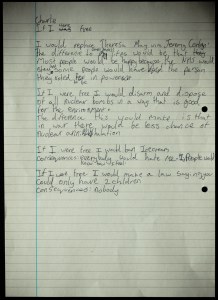 Charlie
If I were free
I would replace Theresa May with Jeremy Corbyn
the difference in life would be that
Most people would be happy because the NHS would
some people would have the person
they voted for in power
If I were free I would disarm and dispose
of all nuclear bombs in a way that is good
for the environment
the difference this would make is that
in war there would be less chance of
nuclear
If I were free I would ban Icecream
consequences everybody would hate me. People would
If I were free I would make a law saying you
Could only have 2 children
consequences: nobody